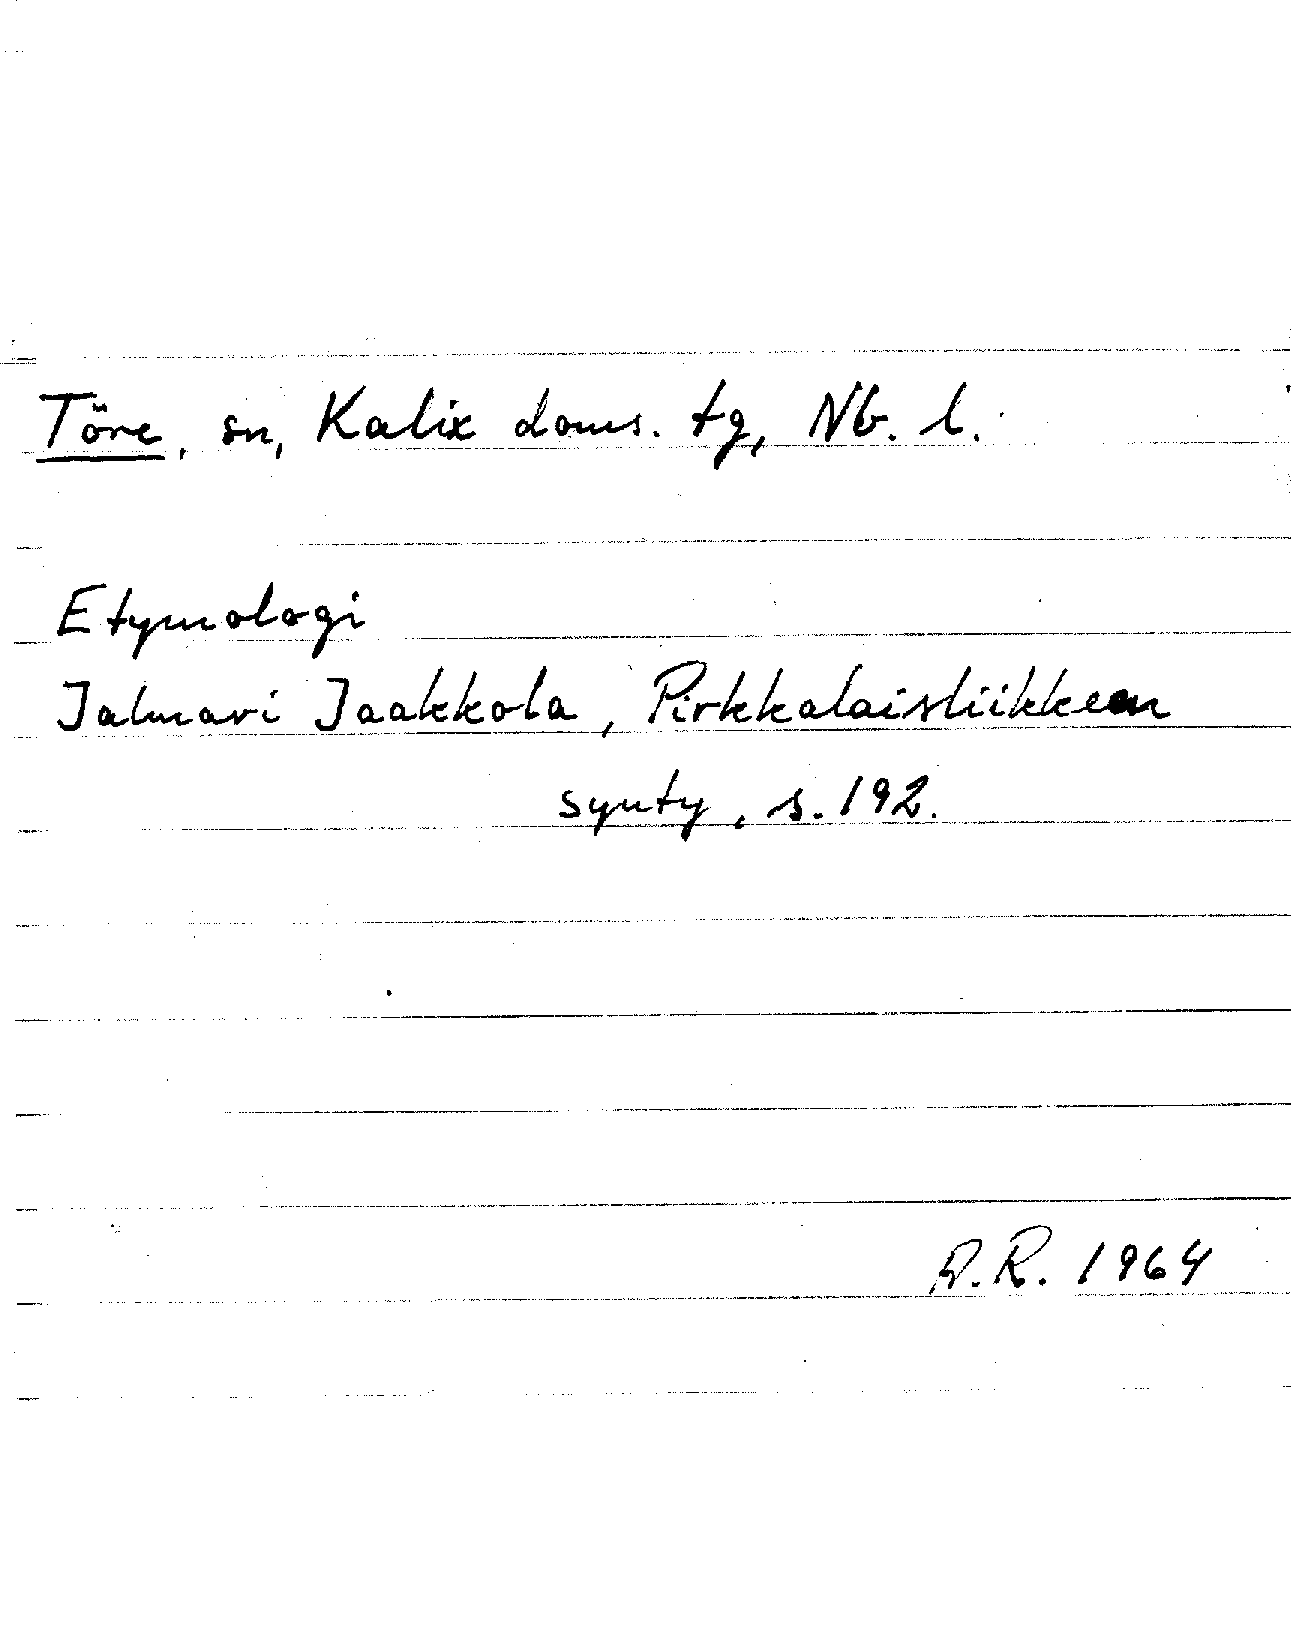 Töre, sn, Kalix doms. tg, Nb. l.
Etymologi
Jalmari Jaakkola, Pirkkalaisliikkeen
synty, s. 192.
R. 1964